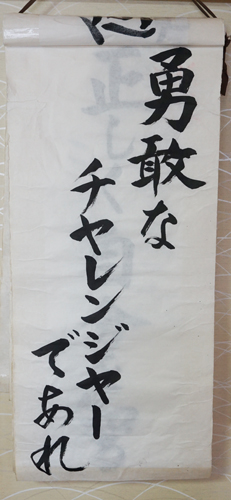 勇敢な
チャレンジャー
であれ